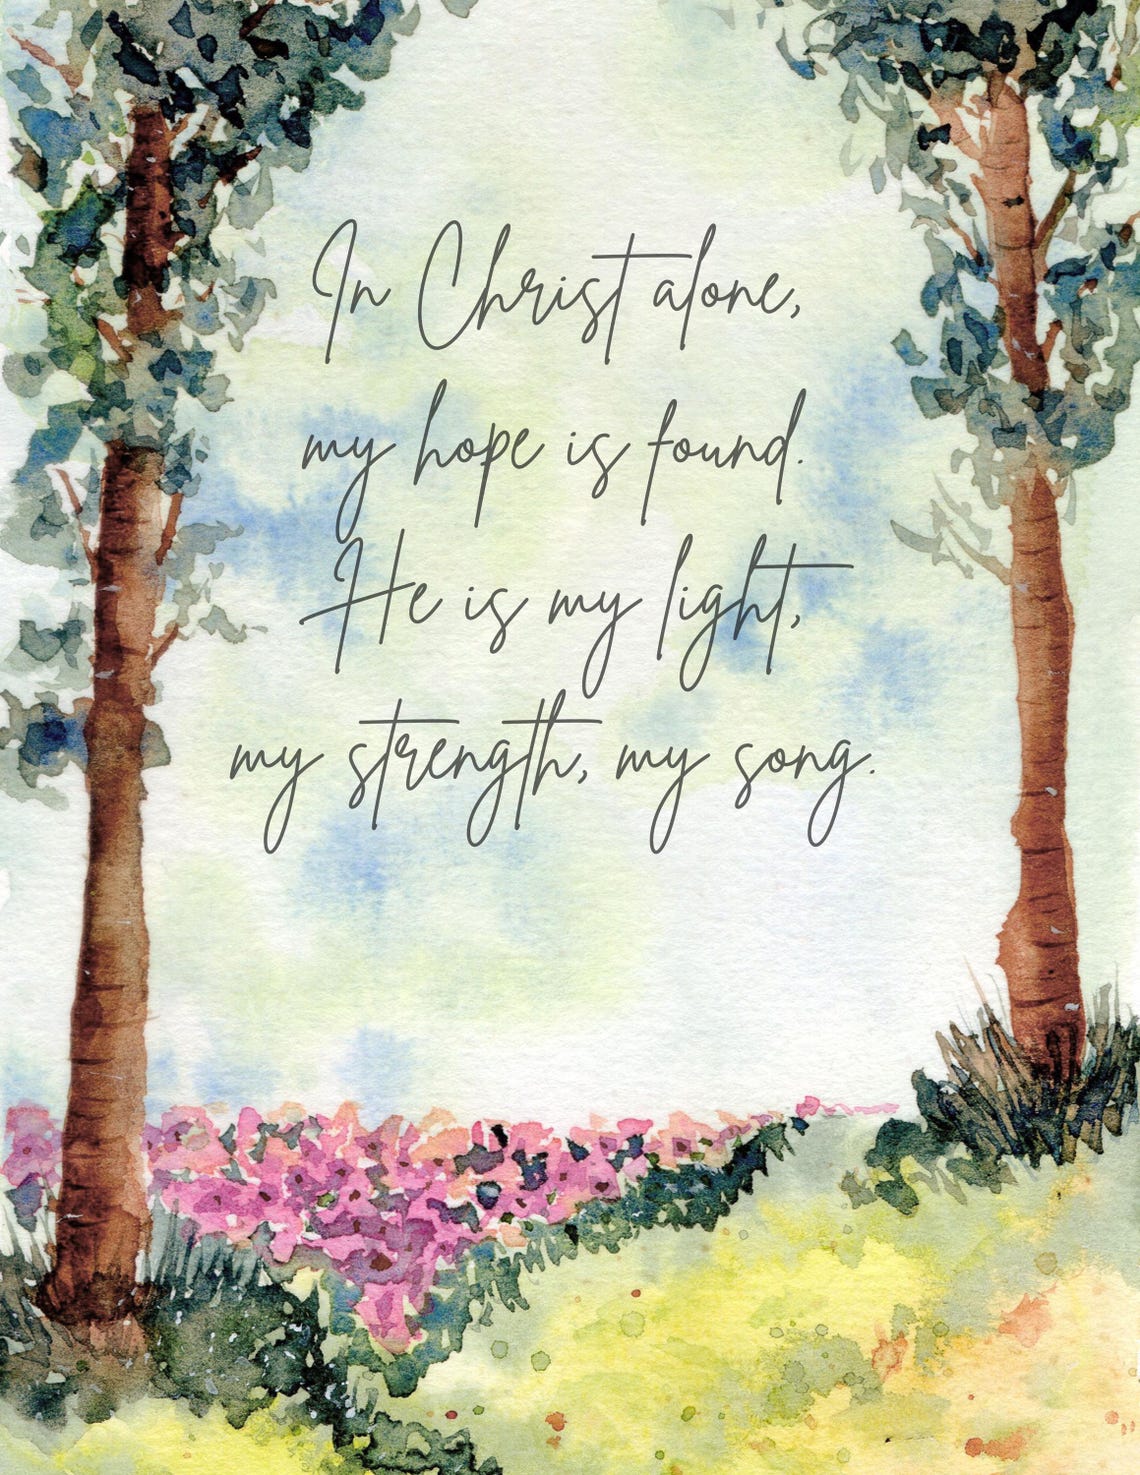 In Christ alone,
my hope is found.
He is my light,
my strength, my song.